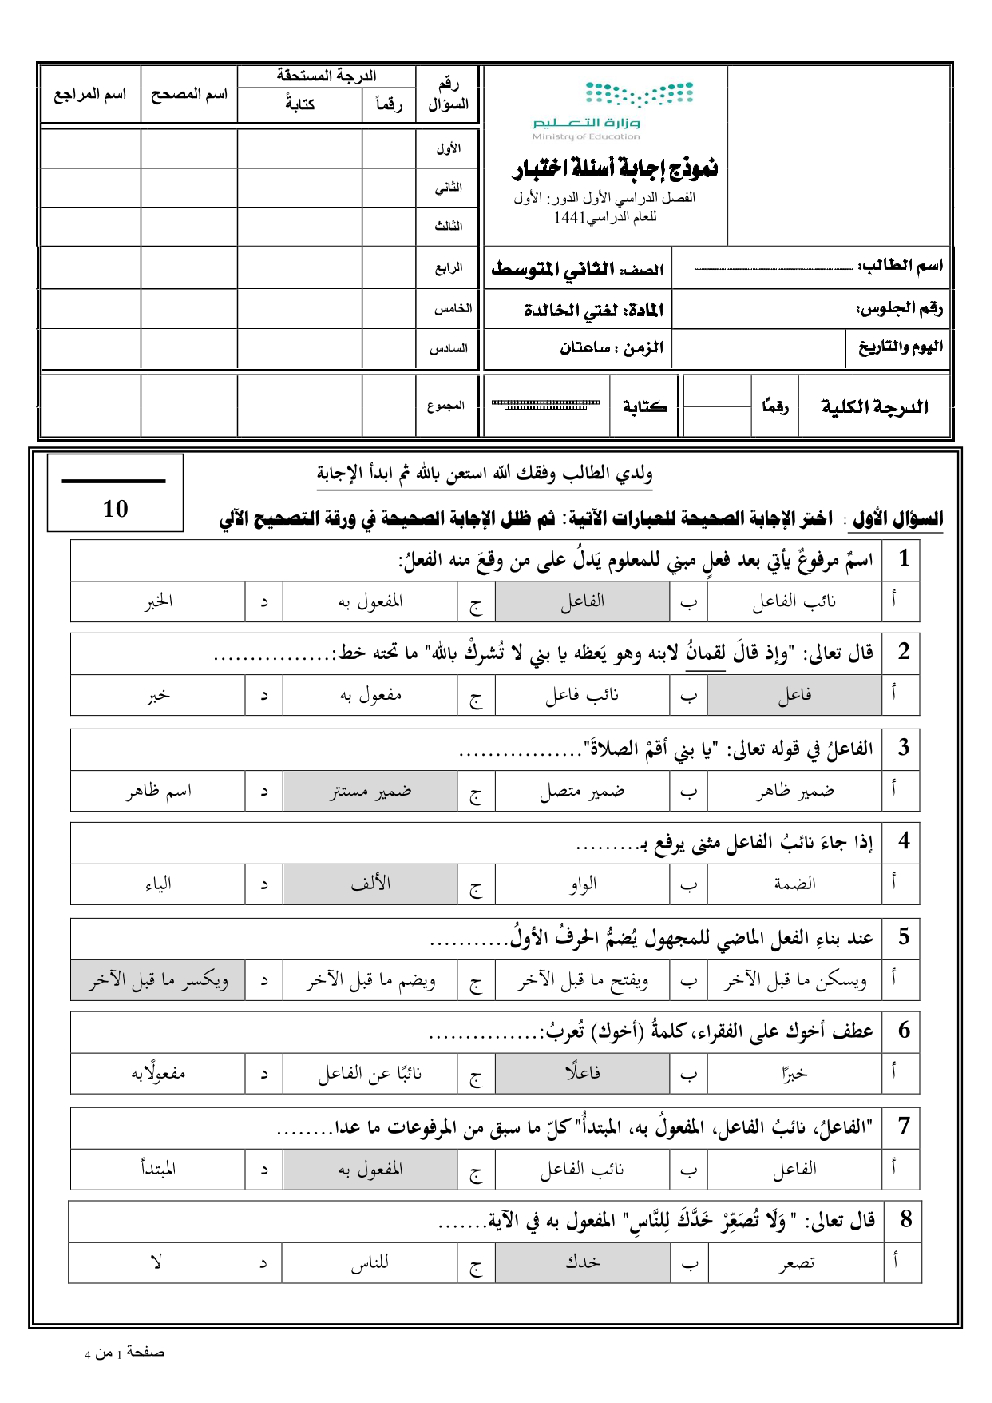 وزارة التعليم
Ministry of Education
نموذج إجابة أسئلة اختبار
الفصل الدراسي الأول الدور: الأول
للعام الدراسي1441
اسم الطالب: ــــــــــــــــــــــ
الصف: الثاني المتوسط
رقم الجلوس:
المادة: لغتي الخالدة
اليوم والتاريخ
الزمن : ساعتان
الدرجة الكلية
رقمًا
كتابة
رقم السؤال
الدرجة المستحقة
اسم المصحح
اسم المراجع
رقماً
كتابةً
الأول
الثاني
الثالث
الرابع
الخامس
السادس
المجموع
ولدي الطالب وفقك الله استعن بالله ثم ابدأ الإجابة
10
السؤال الأول : اختر الإجابة الصحيحة للعبارات الآتية: ثم ظلل الإجابة الصحيحة في ورقة التصحيح الآلي
1 اسمٌ مرفوعٌ يأتي بعد فعلٍ مبني للمعلوم يَدلُ على من وقعَ منه الفعلُ:
أ نائب الفاعل ب الفاعل ج المفعول به د الخبر
2 قال تعالى: "وإذ قالَ لقمانُ لابنه وهو يَعظه يا بني لا تُشركْ بالله" ما تحته خط:................
أ فاعل ب نائب فاعل ج مفعول به د خبر
3 الفاعلُ في قوله تعالى: "يا بني أقمْ الصلاةَ".................
أ ضمير ظاهر ب ضمير متصل ج ضمير مستتر د اسم ظاهر
4 إذا جاءَ نائبُ الفاعل مثنى يرفع بـ.........
أ الضمة ب الواو ج الألف د الياء
5 عند بناءِ الفعل الماضي للمجهول يُضمُّ الحرفُ الأولُ...........
أ ويسكن ما قبل الآخر ب ويفتح ما قبل الآخر ج ويضم ما قبل الآخر د ويكسر ما قبل الآخر
6 عطف أخوك على الفقراء، كلمةُ (أخوك) تُعربُ:................
أ خبرًا ب فاعلًا ج نائبًا عن الفاعل د مفعولًابه
7 "الفاعلُ، نائبُ الفاعل، المفعولُ به، المبتدأُ" كلّ ما سبق من المرفوعات ما عدا........
أ الفاعل ب نائب الفاعل ج المفعول به د المبتدأ
8 قال تعالى: " وَلَا تُصَعِّرْ خَدَّكَ لِلنَّاسِ" المفعول به في الآية.......
أ تصعر ب خدك ج للناس د لا
صفحة 1 من 4